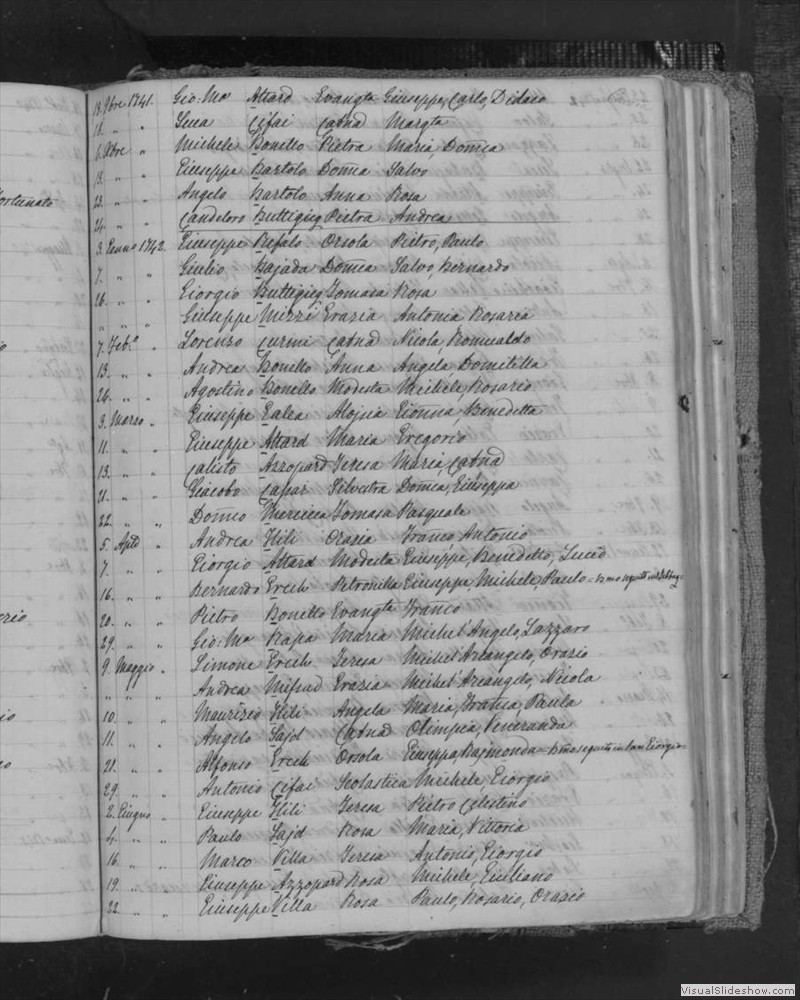 18. 9bre 1741. Gio: Ma Attard Evangta Giuseppe, Carlo, Didaco
18. " " Luca Cifai Catna Margta
6. Xbre " Michele Bonello Pietra Maria, Domca
13. " " Giuseppe Bartolo Domca Salvo
ortunato 23. " " Angelo Bartolo Anna Rosa
24. " " Candeloro Buttigieg Pietra Andrea
3. Genno 1742. Giuseppe Refalo Orsola Pietro, Paulo
7. " " Giulio Bajada Domca Salvo, Bernardo
26. " " Giorgio Buttigieg Tomasa Rosa
" " " Giuseppe Mizzi Grazia Antonia Rosaria
7. Febo " Lorenzo Curmi Catna Nicola, Romualdo
13. " " Andrea Bonello Anna Angela Domitilla
26. " " Agostino Bonello Modesta Michele, Rosario
3. Marzo " Giuseppe Galea Alojsia Gionna, Benedetta
11. " " Giuseppe Attard Maria Gregorio
13. " " Calisto Azzopard Teresa Maria, Catna
21. " " Giacobo Capar Silvestra Domca, Giuseppa
22. " " Domco Mercieca Tomasa Pasquale
5. Aple " Andrea Hili Orasia Franco Antonio
7. " " Giorgio Attard Modesta Giuseppe, Benedetto, Luceo
16. " " Bernardo Grech Petronilla Giuseppe, Michele, Paulo
20. " " Pietro Bonello Evangta Franco
29. " " Gio: Ma Rapa Maria Michel'Angelo, Lazzaro
9. Maggio " Simone Grech Teresa Michel'Arcangelo, Orazio
" " " Andrea Mifsud Grazia Michel'Arcangelo, Nicola
10. " " Maurizio Hili Angela Maria, Franca, Paula
11. " " Angelo Sajd Catna Olimpia, Veneranda
21. " " Alfonso Grech Orsola Giuseppa, Rajmonda
29. " " Antonio Cifai Scolastica Michele, Giorgio
2. Giugno " Giuseppe Hili Teresa Pietro Celestino
4. " " Paulo Sajd Rosa Maria, Vittoria
16. " " Marco Villa Teresa Antonio, Giorgio
19. " " Giuseppe Azzopard Rosa Michele, Giuliano
22. " " Giuseppe Villa Rosa Paulo, Rosario, Orazio
VisualSlideshow.com